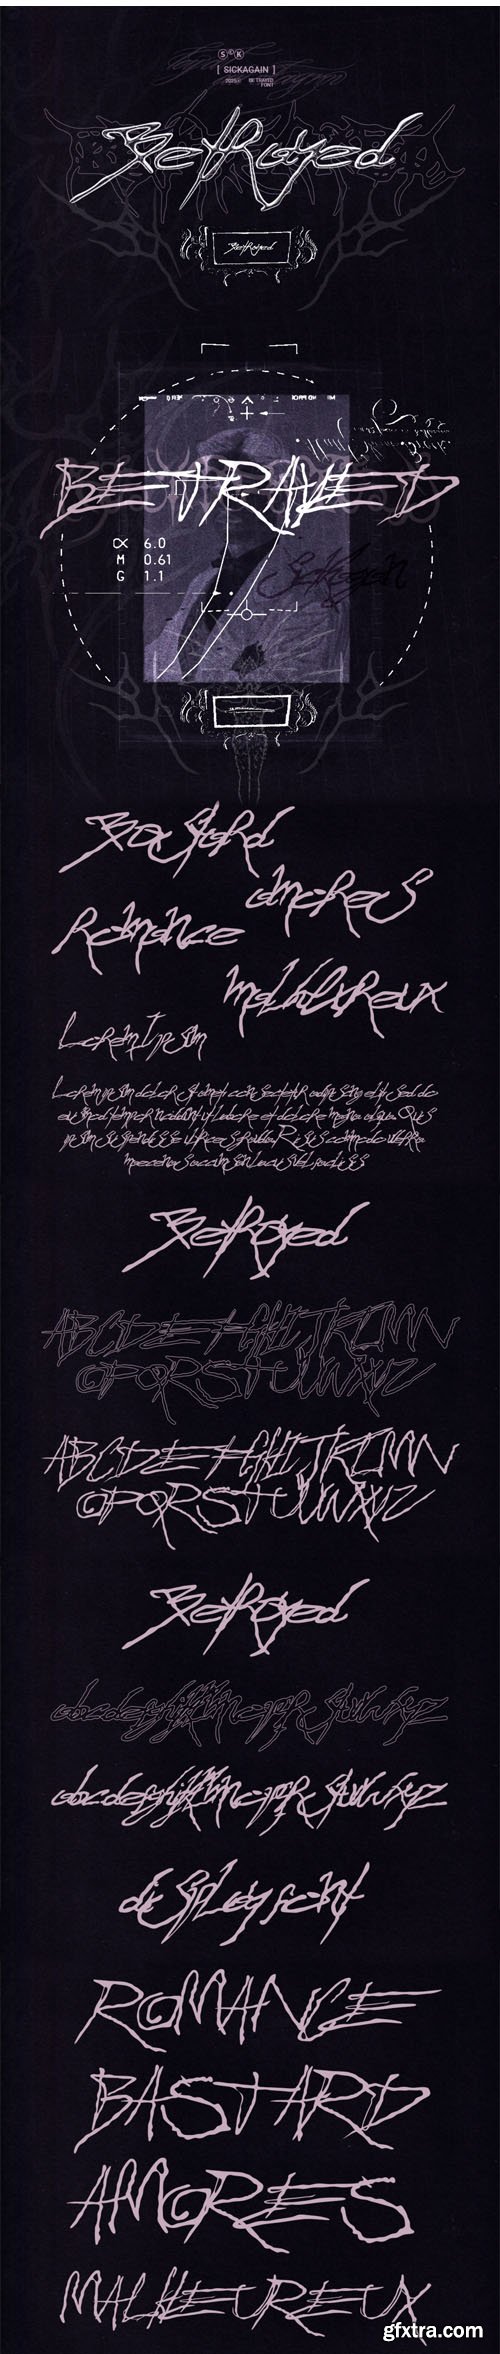 SCK
[ SICKAGAIN ]
2025© BETRAYED
FONT
Betrayed
Betrayed
BETRAYED
∝ 6.0
M 0.61
G 1.1
Sickagain
Bastard
amores
Romance
malheureux
Lorem Ipsum
Lorem ipsum dolor sit amet consectetur adipiscing elit sed do
eiusmod tempor incididunt ut labore et dolore magna aliqua. Quis
ipsum suspendisse ultrices gravida. Risus commodo viverra
maecenas accumsan lacus vel facilisis
Betrayed
ABCDEFGHIJKLMN
OPQRSTUVWXYZ
ABCDEFGHIJKLMN
OPQRSTUVWXYZ
Betrayed
abcdefghijklmnopqrstuvwxyz
abcdefghijklmnopqrstuvwxyz
display font
ROMANCE
BASTARD
AMORES
MALHEUREUX
gfxtra.com